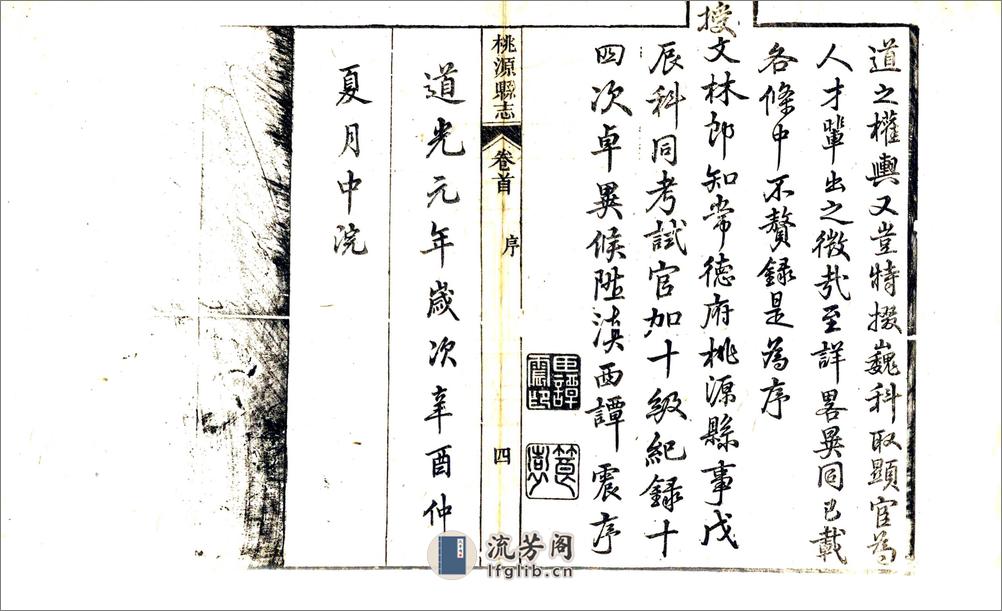 道之權輿又豈特掇巍科取顯宦為
人才輩出之徵哉至詳畧異同已載
各條中不贅錄是為序
授
文林郎知常德府桃源縣事戊
辰科同考試官加十級紀錄十
四次卓異候陞滇西譚震序
桃源縣志
卷首
序
四
道光元年歲次辛酉仲
夏月中浣
流芳阁
lfglib.cn